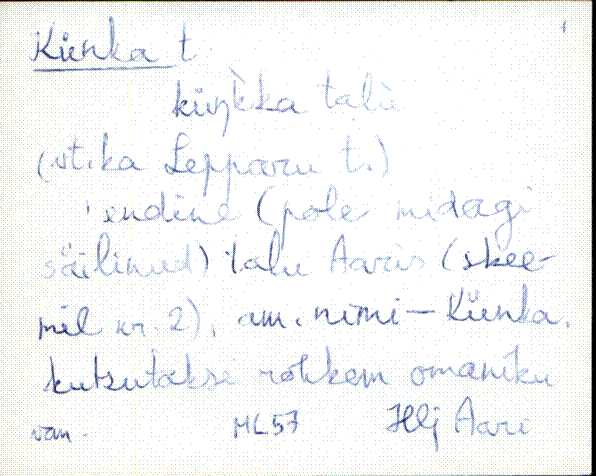 Künka t.
küŋ̀kka talù
(vt. ka Lepparu t.)
endine (pole midagi
säilinud) talu Aaris (skee-
mil nr. 2), am. nimi – Künka.
kutsutakse rohkem omaniku
van. ML57 Hlj Aari